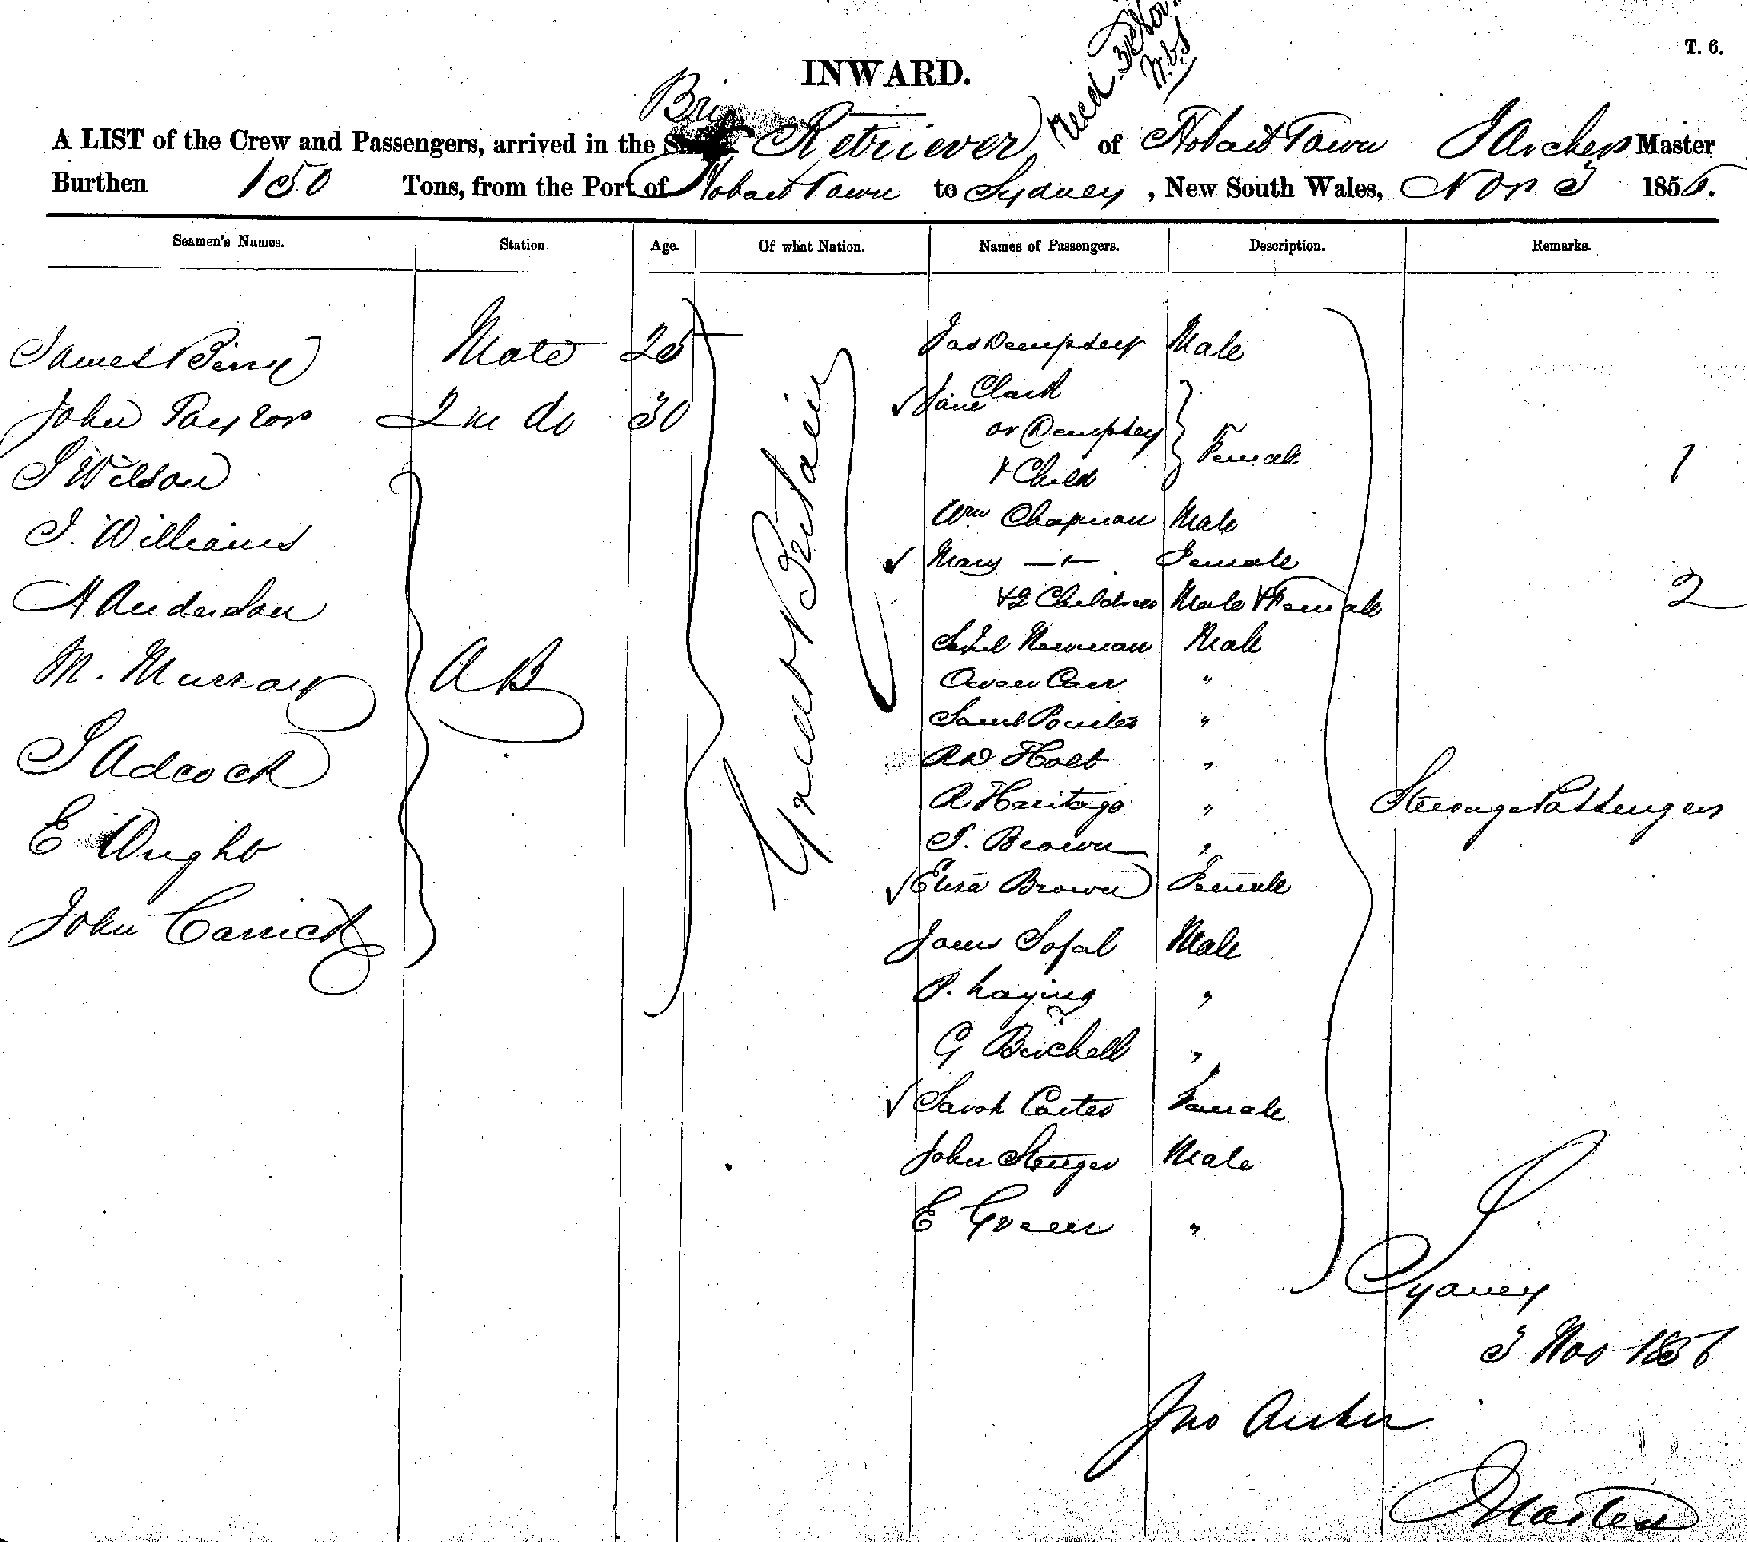 T. 6.
INWARD.
Brig
A LIST of the Crew and Passengers, arrived in the Retriever of Hobart Town J Archer Master
Burthen 150 Tons, from the Port of Hobart Town to Sydney, New South Wales, Nov 3 1856.
Seamen's Names. Station Age. Of what Nation. Names of Passengers. Description. Remarks.
James Mate 25 Great Britain Jas Dempsey Male
John Taylor 2nd do 30 Jane Clark
or Dempsey
& Child Female 1
J Wilson
J. Williams
A Anderson
M. Murray
J Adcock
E Wright
John Carrick
AB
Wm Chapman Male
Mary Female
& 2 Children Male & Female 2
Saml Newman Male
Owen Carr "
Saml "
R W Holt "
R Haritage "
J. Brown "
Eliza Brown Female
James Sofal Male
P. Laying "
G Birchell "
Sarah Carter Female
John Male
E Green "
Steerage Passengers
Sydney
3 Nov 1856
Jno Archer
Master